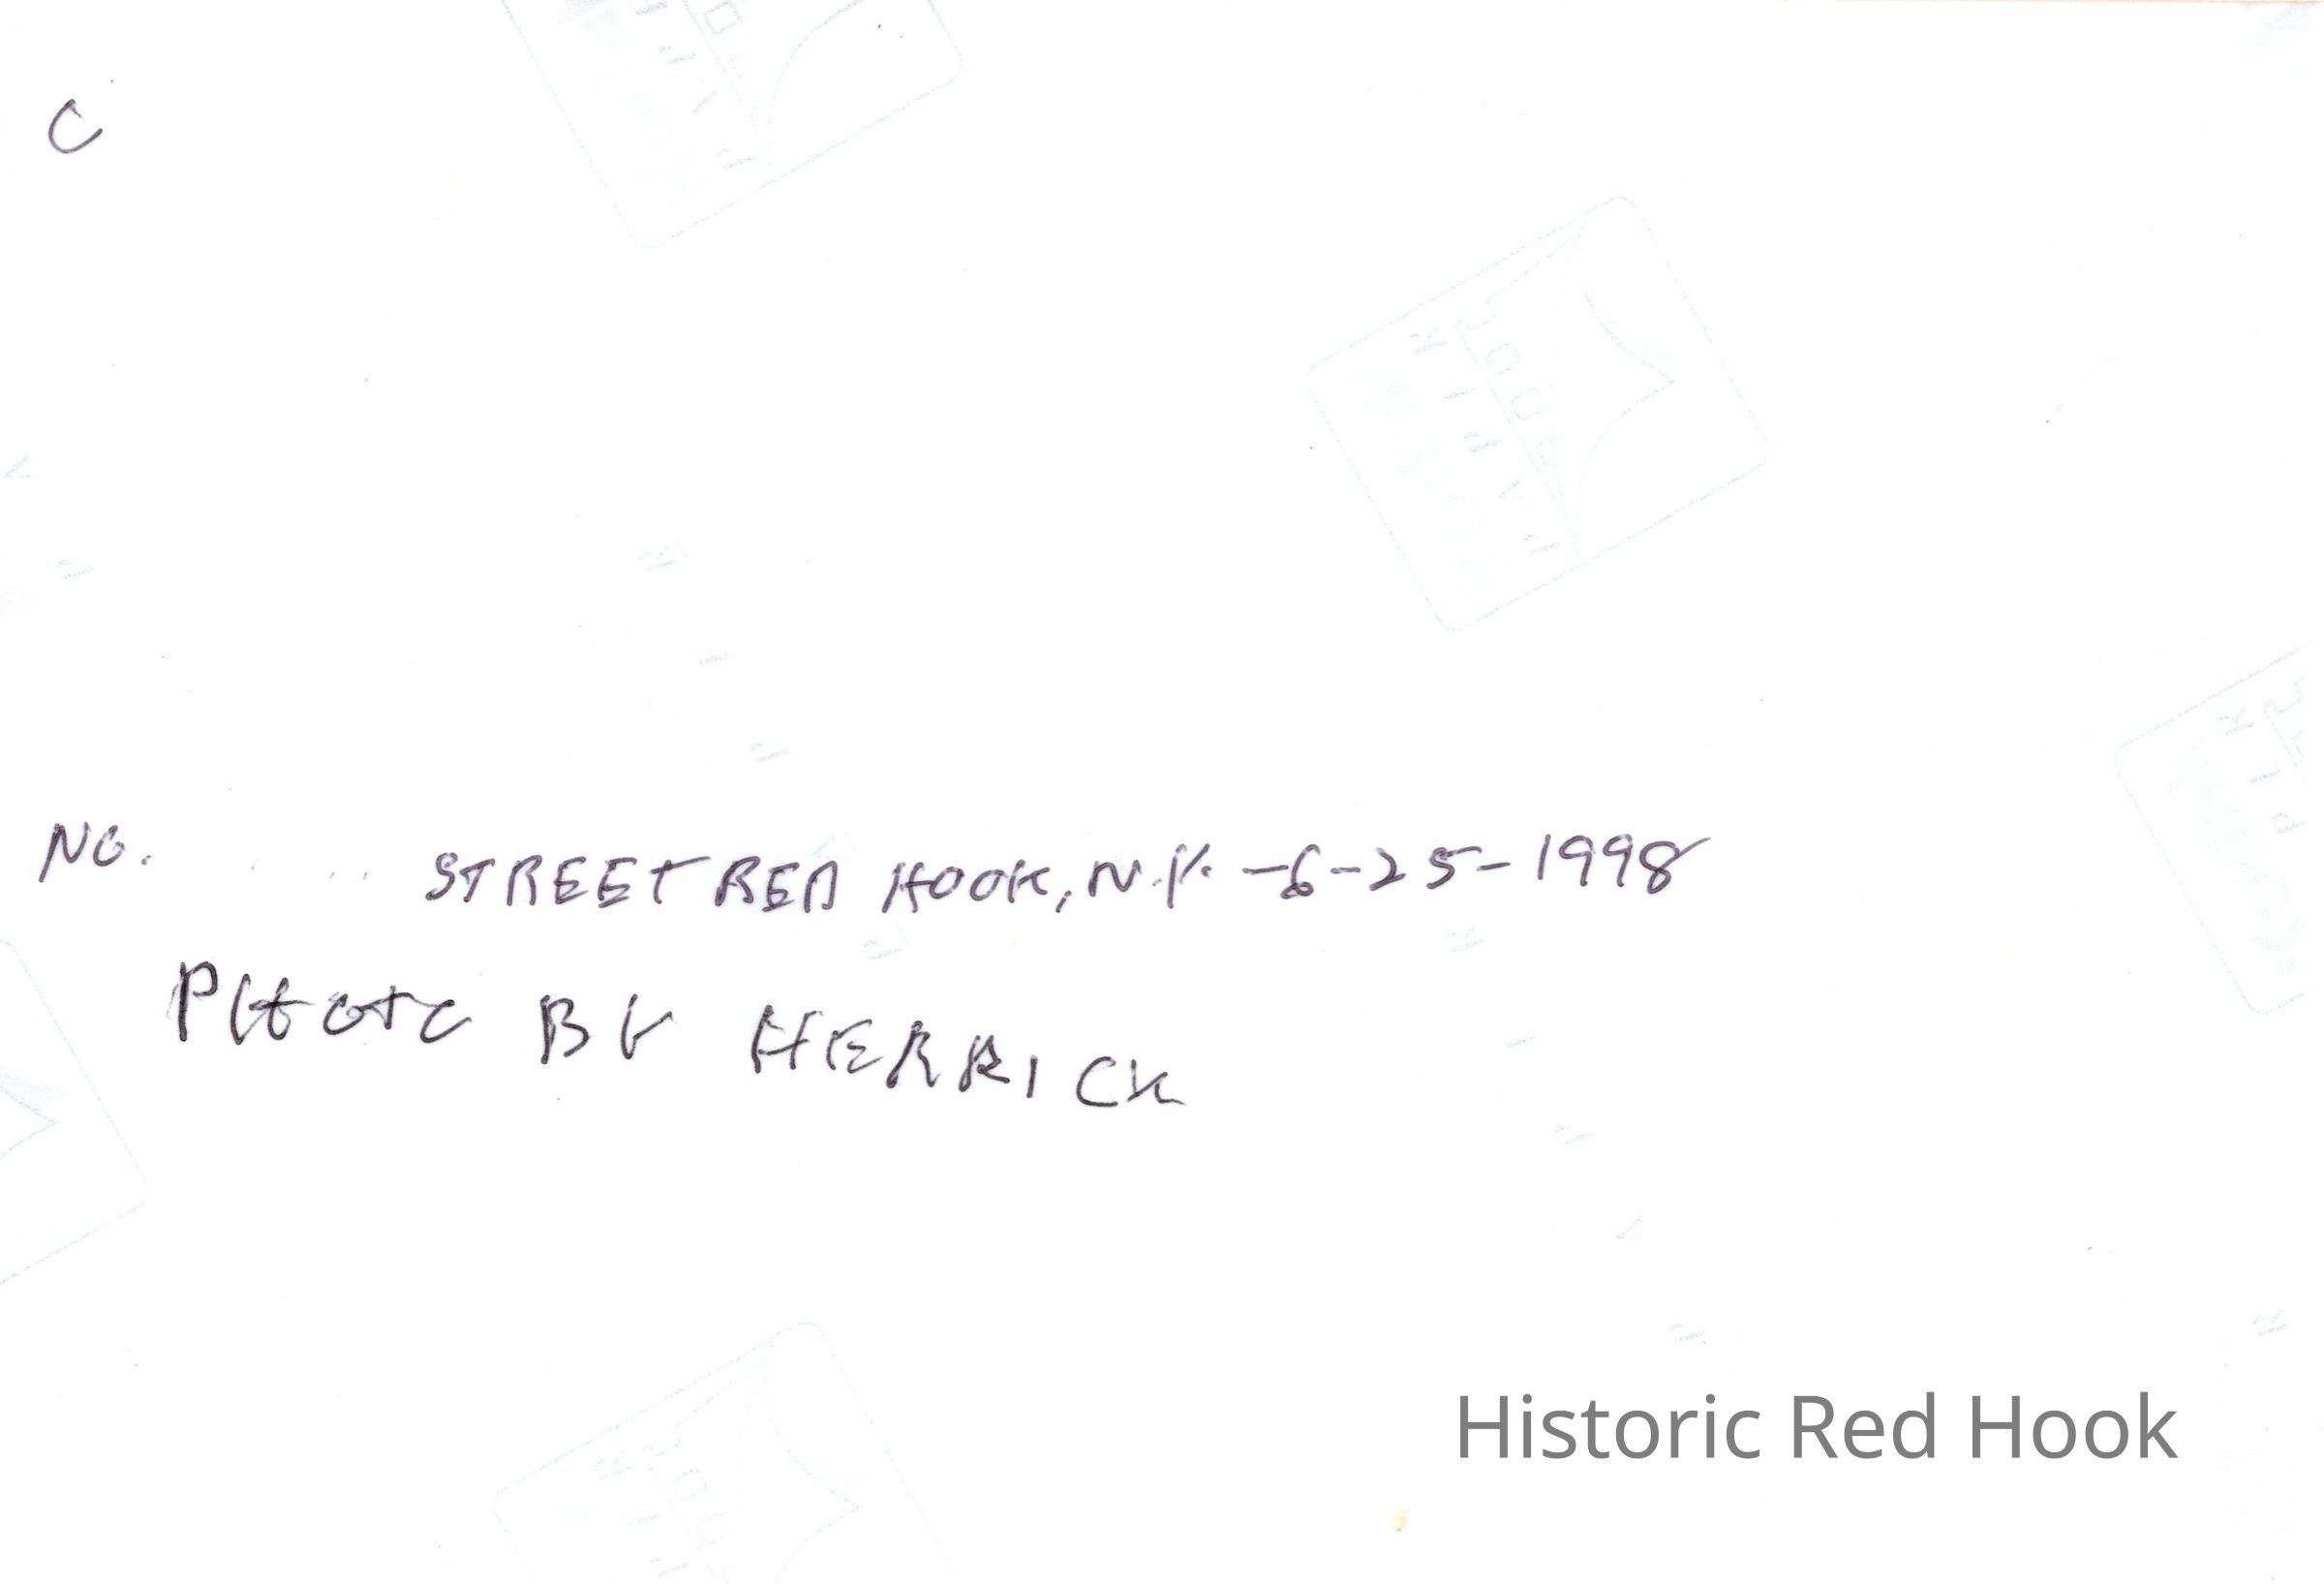 C
NO. STREET RED HOOK, N.Y. -6-25-1998
PHOTO BY HERRICK
Historic Red Hook